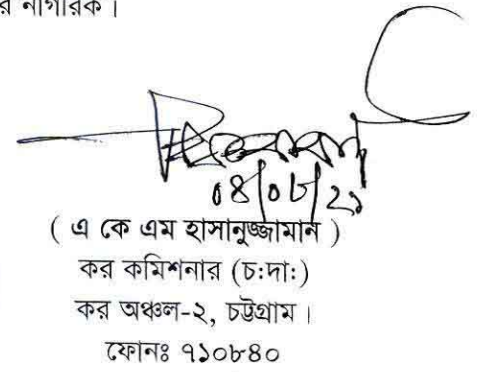 র নাগরিক।
০৪/০৮/২১
( এ কে এম হাসানুজ্জামান )
কর কমিশনার (চ:দা:)
কর অঞ্চল-২, চট্টগ্রাম।
ফোনঃ ৭১০৮৪০